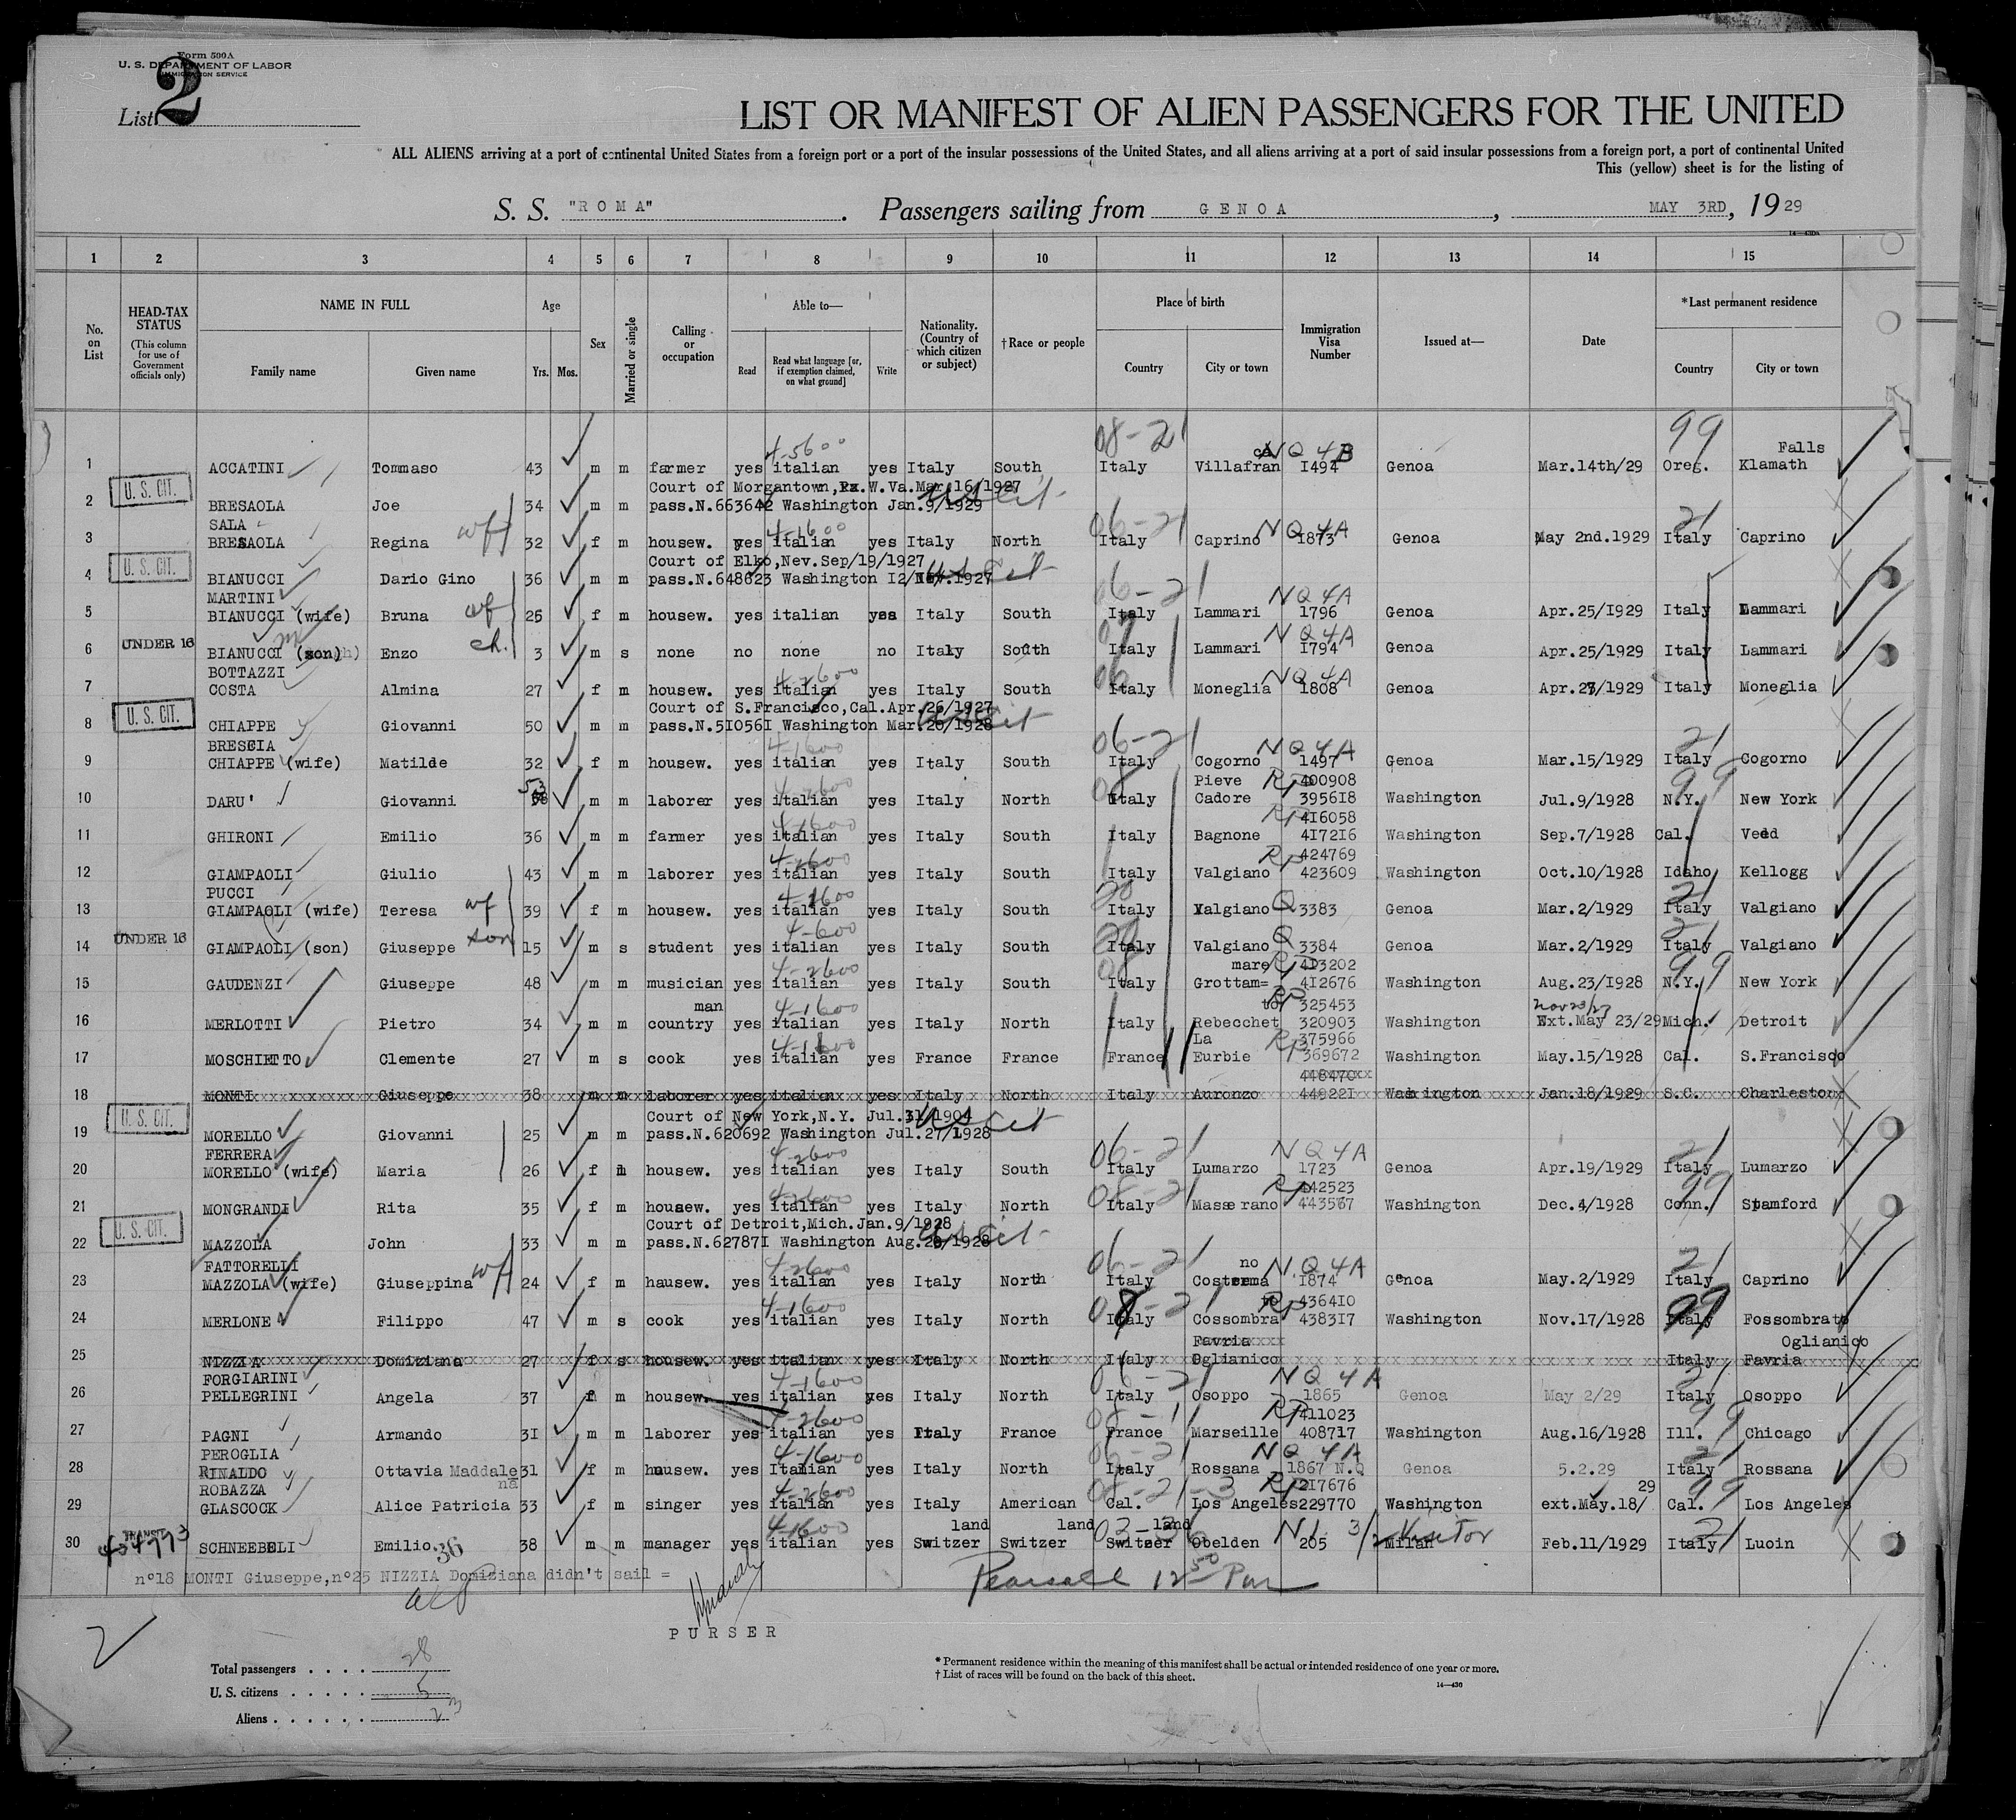 Form 500A
U. S. DEPARTMENT OF LABOR
IMMIGRATION SERVICE
List 2
LIST OR MANIFEST OF ALIEN PASSENGERS FOR THE UNITED
ALL ALIENS arriving at a port of continental United States from a foreign port or a port of the insular possessions of the United States, and all aliens arriving at a port of said insular possessions from a foreign port, a port of continental United
This (yellow) sheet is for the listing of
S. S. "ROMA". Passengers sailing from GENOA, MAY 3RD, 1929
14—430A
1 2 3 4 5 6 7 8 9 10 11 12 13 14 15
No. on List
HEAD-TAX STATUS
(This column for use of Government officials only)
NAME IN FULL
Family name Given name
Age
Yrs. Mos.
Sex
Married or single
Calling or occupation
Able to—
Read Read what language [or, if exemption claimed, on what ground] Write
Nationality. (Country of which citizen or subject)
†Race or people
Place of birth
Country City or town
Immigration Visa Number
Issued at—
Date
*Last permanent residence
Country City or town
4-5600 08-21 NQ 4B 99 Falls
1 ACCATINI Tommaso 43 m m farmer yes italian yes Italy South Italy Villafran ca 1494 Genoa Mar.14th/29 Oreg. Klamath
U. S. CIT. Court of Morgantown, W.Va.Mar.16/1927
2 BRESAOLA Joe 34 m m pass.N.663642 Washington Jan.9/1929 US Cit
SALA wf 4-1600 06-21 NQ 4A 21
3 BRESAOLA Regina 32 f m housew. yes italian yes Italy North Italy Caprino 1873 Genoa May 2nd.1929 Italy Caprino
U. S. CIT. Court of Elko,Nev.Sep/19/1927
4 BIANUCCI Dario Gino 36 m m pass.N.648623 Washington 12/ .1927 US Cit
MARTINI wf 06-21 NQ 4A
5 BIANUCCI (wife) Bruna 25 f m housew. yes italian yes Italy South Italy Lammari 1796 Genoa Apr.25/1929 Italy Lammari
UNDER 16 ch. NQ 4A
6 BIANUCCI (son) Enzo 3 m s none no none no Italy South Italy Lammari 1794 Genoa Apr.25/1929 Italy Lammari
BOTTAZZI 4-2600 06 NQ 4A
7 COSTA Almina 27 f m housew. yes italian yes Italy South Italy Moneglia 1808 Genoa Apr.27/1929 Italy Moneglia
U. S. CIT. Court of S.Francisco,Cal.Apr.26/1927
8 CHIAPPE Giovanni 50 m m pass.N.510561 Washington Mar.20/1928 US Cit
BRESCIA 4-1600 06-21 NQ 4A 21
9 CHIAPPE (wife) Matilde 32 f m housew. yes italian yes Italy South Italy Cogorno 1497 Genoa Mar.15/1929 Italy Cogorno
53 4-2600 08 Pieve RP 400908 99
10 DARU' Giovanni m m laborer yes italian yes Italy North Italy Cadore 395618 Washington Jul.9/1928 N.Y. New York
4-1600 RP 416058
11 GHIRONI Emilio 36 m m farmer yes italian yes Italy South Italy Bagnone 417216 Washington Sep.7/1928 Cal. Veed
4-2600 RP 424769
12 GIAMPAOLI Giulio 43 m m laborer yes italian yes Italy South Italy Valgiano 423609 Washington Oct.10/1928 Idaho Kellogg
PUCCI wf 4-1600 20 Q 21
13 GIAMPAOLI (wife) Teresa 39 f m housew. yes italian yes Italy South Italy Valgiano 3383 Genoa Mar.2/1929 Italy Valgiano
UNDER 16 son 4-600 Q 21
14 GIAMPAOLI (son) Giuseppe 15 m s student yes italian yes Italy South Italy Valgiano 3384 Genoa Mar.2/1929 Italy Valgiano
4-2600 08 mare RP 413202 99
15 GAUDENZI Giuseppe 48 m m musician yes italian yes Italy South Italy Grottam= 412676 Washington Aug.23/1928 N.Y. New York
man 4-1600 to RP 325453 Nov 23/27
16 MERLOTTI Pietro 34 m m country yes italian yes Italy North Italy Rebecchet 320903 Washington Ext.May 23/29 Mich. Detroit
La RP 375966
17 MOSCHIETTO Clemente 27 m s cook yes italian yes France France France Eurbie 369672 Washington May.15/1928 Cal. S.Francisco
448470
18 MONTI Giuseppe 38 m m laborer yes italian yes Italy North Italy Auronzo 449221 Washington Jan.18/1929 S.C. Charleston
U. S. CIT. Court of New York,N.Y. Jul.31/1904
19 MORELLO Giovanni 25 m m pass.N.620692 Washington Jul.27/1928 US Cit
FERRERA 4-2600 06-21 NQ 4A 21
20 MORELLO (wife) Maria 26 f m housew. yes italian yes Italy South Italy Lumarzo 1723 Genoa Apr.19/1929 Italy Lumarzo
4-2600 08-21 RP 442523 99
21 MONGRANDI Rita 35 f m housew. yes italian yes Italy North Italy Masserano 443567 Washington Dec.4/1928 Conn. Stamford
U. S. CIT. Court of Detroit,Mich.Jan.9/1928
22 MAZZOLA John 33 m m pass.N.627871 Washington Aug.28/1928 US Cit
FATTORELLI wf 4-2600 06-21 no NQ 4A 21
23 MAZZOLA (wife) Giuseppina 24 f m hausew. yes italian yes Italy North Italy Costerma 1874 Genoa May.2/1929 Italy Caprino
4-1600 08-21 to RP 436410 99
24 MERLONE Filippo 47 m s cook yes italian yes Italy North Italy Cossombra 438317 Washington Nov.17/1928 Italy Fossombrato
Favria Oglianico
25 NIZZIA Domiziana 27 f s housew. yes italian yes Italy North Italy Oglianico Italy Favria
FORGIARINI 4-1600 NQ 4A 21
26 PELLEGRINI Angela 37 f m housew. yes italian yes Italy North Italy Osoppo 1865 Genoa May 2/29 Italy Osoppo
4-2600 08-11 RP 411023 99
27 PAGNI Armando 31 m m laborer yes italian yes Italy France France Marseille 408717 Washington Aug.16/1928 Ill. Chicago
PEROGLIA 4-1600 06-21 NQ 4A 21
28 RINALDO Ottavia Maddalena 31 f m housew. yes Italian yes Italy North Italy Rossana 1867 N.Q Genoa 5.2.29 Italy Rossana
ROBAZZA 4-2600 08-21-3 RP 217676 29 99
29 GLASCOCK Alice Patricia 33 f m singer yes italian yes Italy American Cal. Los Angeles 229770 Washington ext.May.18/ Cal. Los Angeles
TRANSIT 4-1600 land land land 03-36 N1 3/2 Visitor 21
30 434773 SCHNEEBELI Emilio 36 38 m m manager yes italian yes Switzer Switzer Switzer Obelden 205 Milan Feb.11/1929 Italy Luoin
n°18 MONTI Giuseppe,n°25 NIZZIA Domiziana didn't sail =
Pearsall 12 50 Pm
PURSER
Total passengers 28
U. S. citizens 5
Aliens 23
* Permanent residence within the meaning of this manifest shall be actual or intended residence of one year or more.
† List of races will be found on the back of this sheet.
14—430